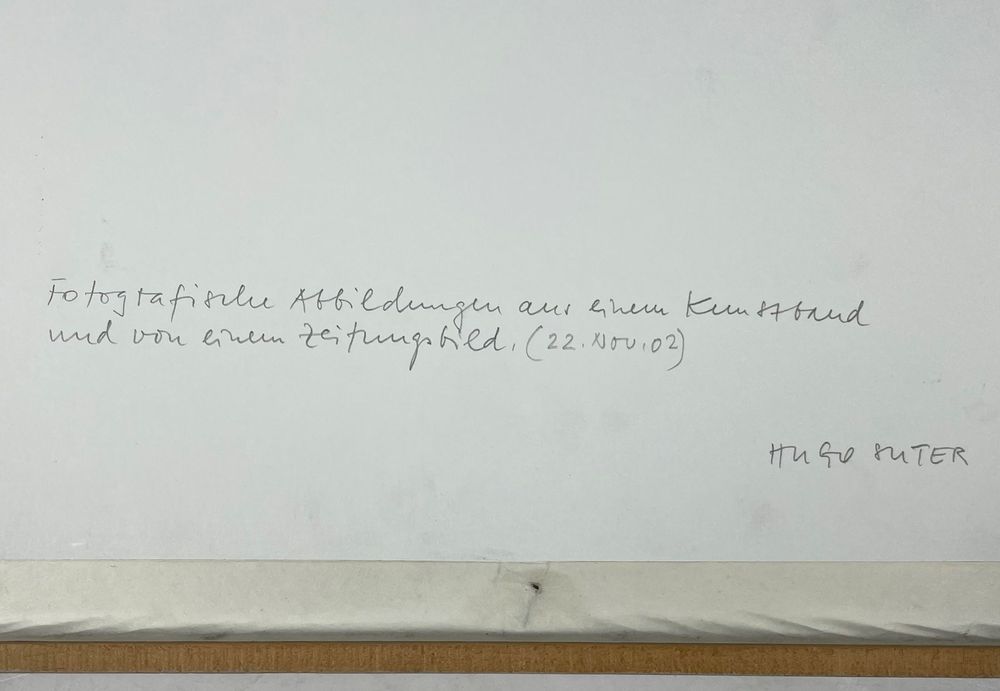 Fotografische Abbildungen aus einem Kunstband
und von einem Zeitungsbild. (22. Nov. 02)
HUGO SUTER